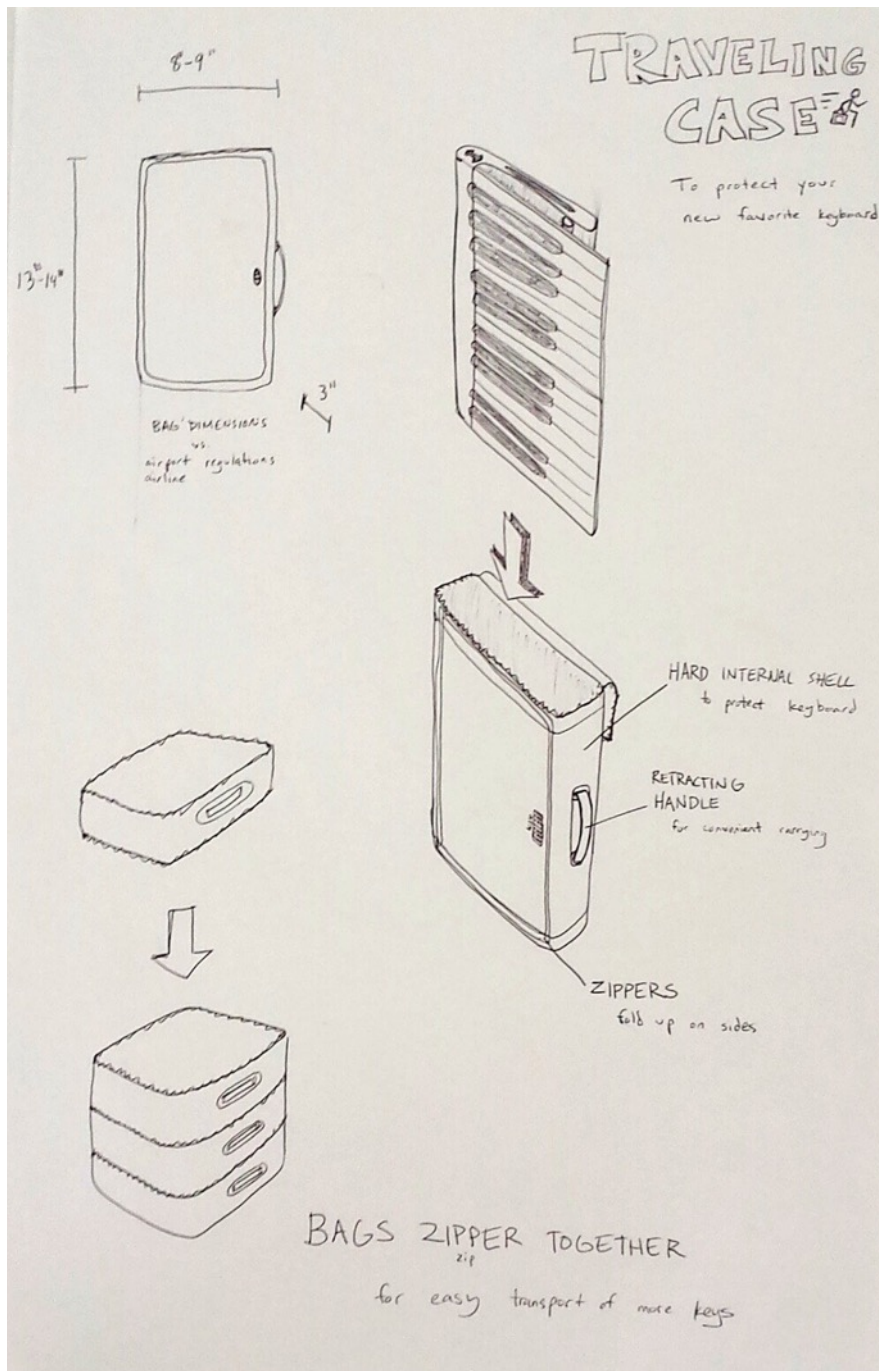 TRAVELING
CASE
To protect your
new favorite keyboard
8-9"
13"-14"
3"
BAG DIMENSIONS
vs.
airport regulations
airline
HARD INTERNAL SHELL
to protect keyboard
RETRACTING
HANDLE
for convenient carrying
ZIPPERS
fold up on sides
BAGS ZIPPER TOGETHER
zip
for easy transport of more keys